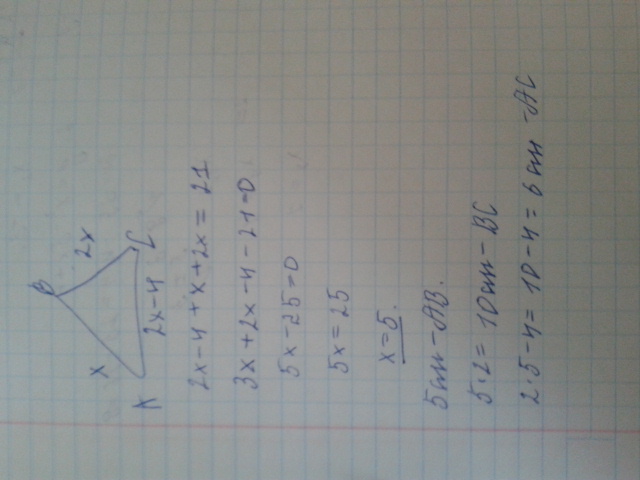 B
x 2x
A 2x-4 C
2x-4+x+2x=21
3x+2x-4-21=0
5x-25=0
5x=25
x=5.
5см-AB.
5·2=10см-BC
2·5-4=10-4=6см-AC